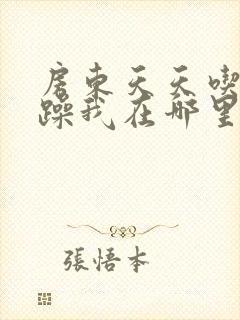 房東天天喫
躁我在哪里
張悟本